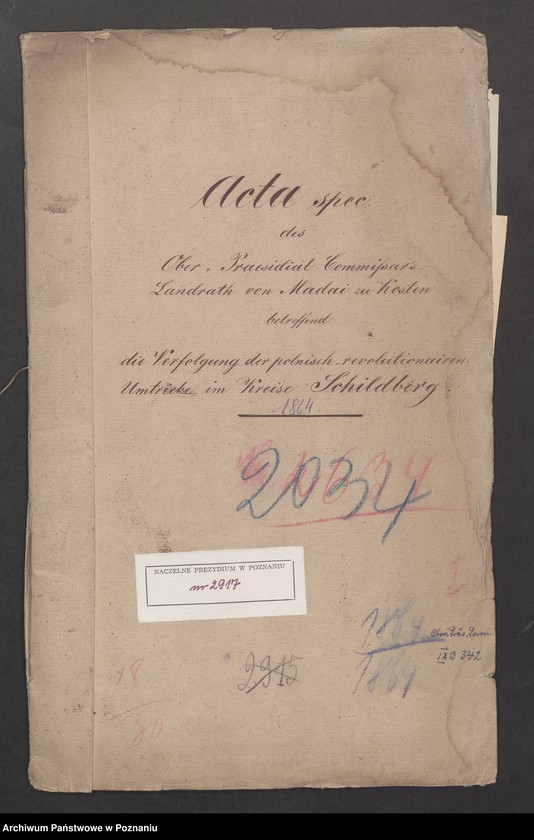 Acta spec.
des
Ober-Praesidial Commißar's
Landrath von Madai zu Kosten
betreffend
die Verfolgung der polnisch-revolutionairen
Umtriebe im Kreise Schildberg.
1864
2034
NACZELNE PREZYDIUM W POZNANIU
nr 2917
I
1864
Ober. Präs. Posen
IX D 342
1864
2915
18
80
Archiwum Państwowe w Poznaniu